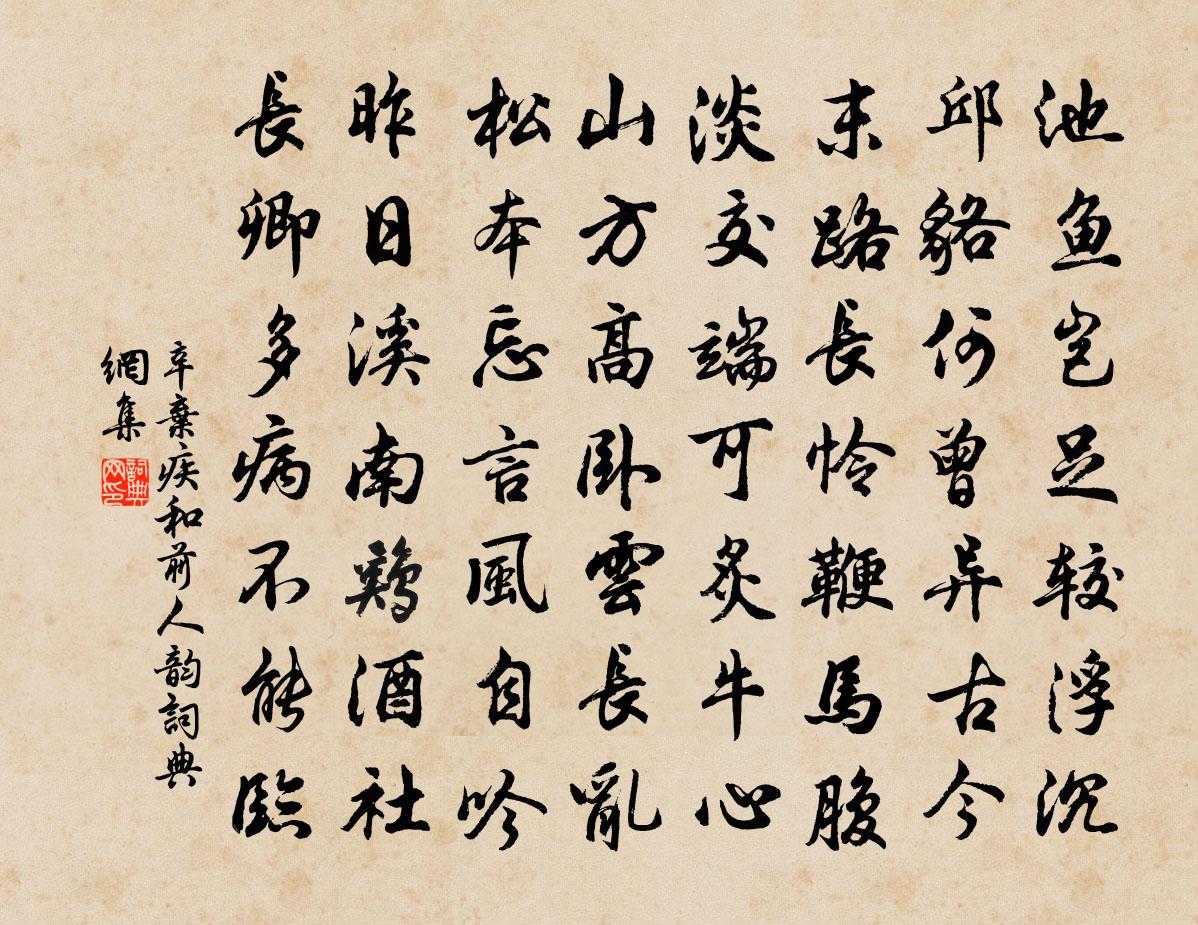 池鱼岂足较浮沉
邱貉何曾异古今
末路长怜鞭馬腹
淡交端可炙牛心
山方高卧雲长亂
松本忘言風自吟
昨日溪南鷄酒社
長卿多病不能臨
辛棄疾和前人韵詞典
網集
詞典
网印